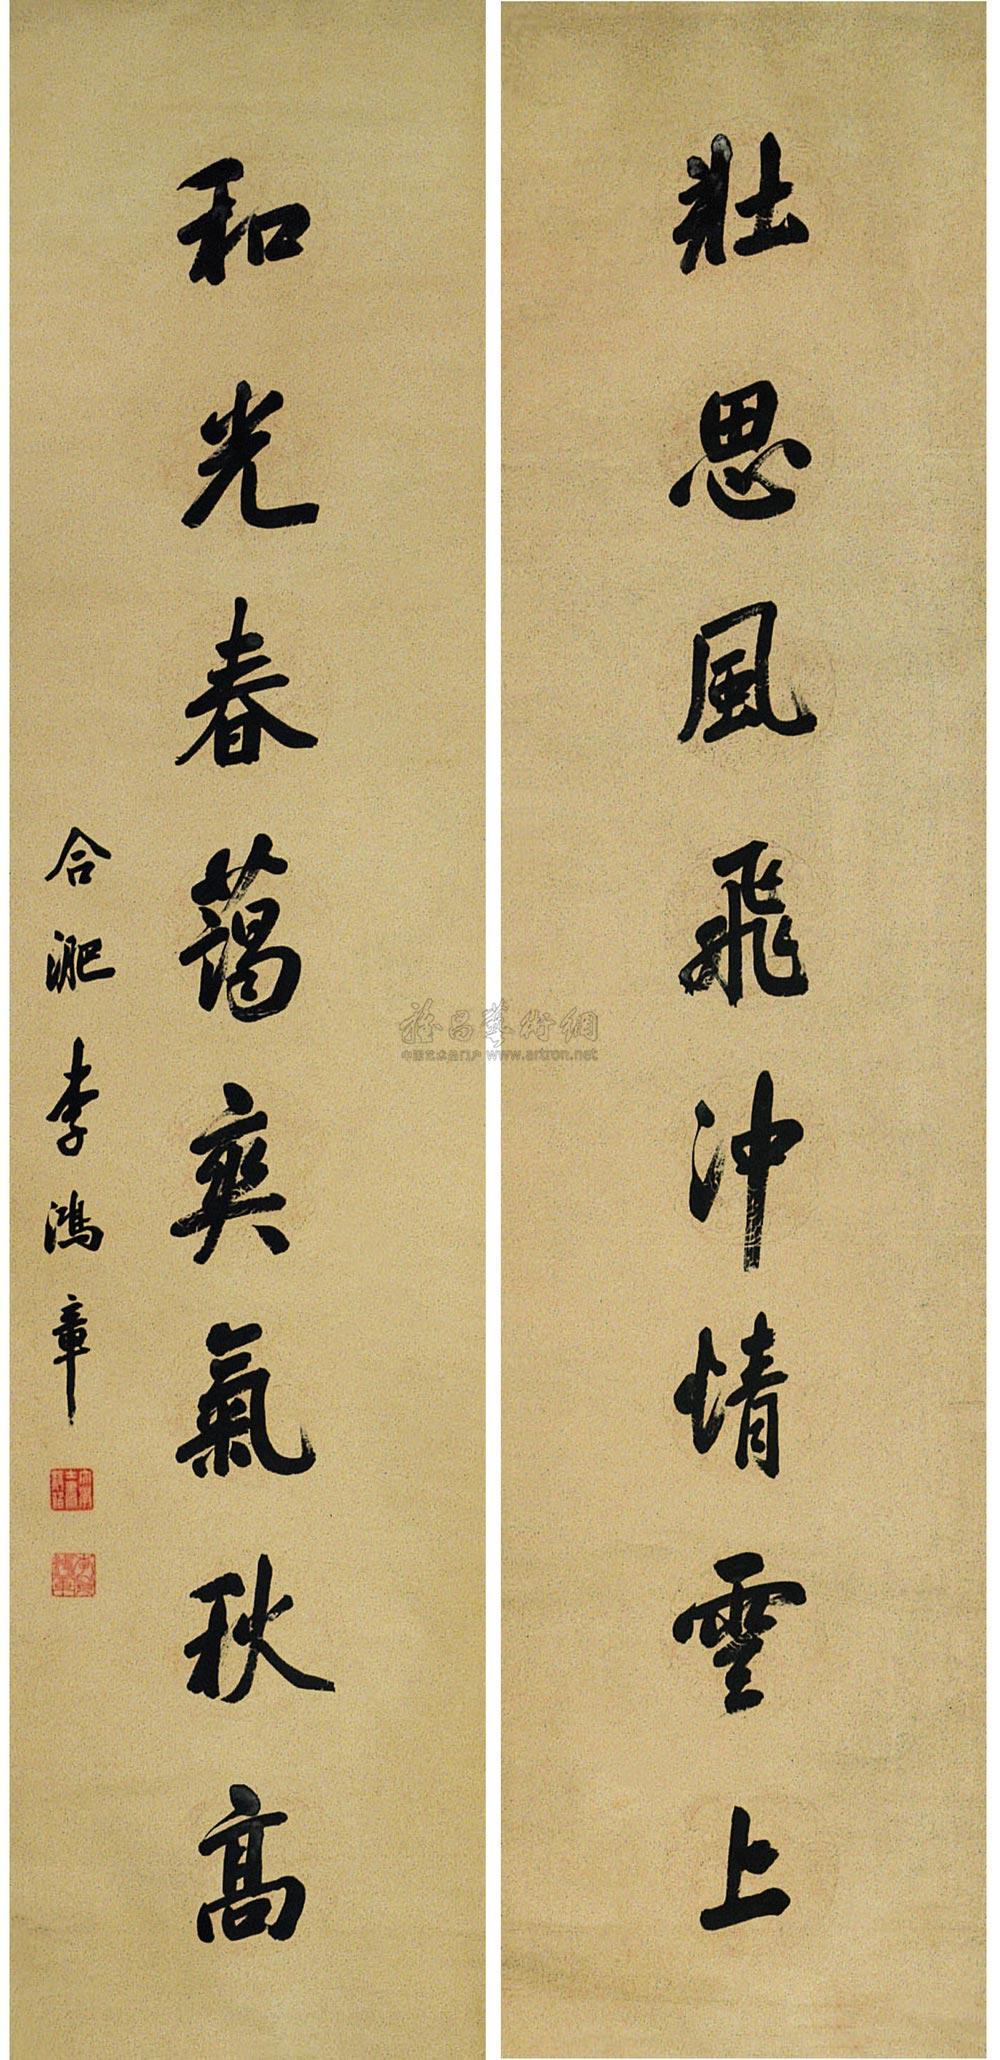 壯思風飛沖情雲上
和光春藹爽氣秋高
合淝李鴻章
雅昌藝術網
中国艺术品门户 www.artron.net